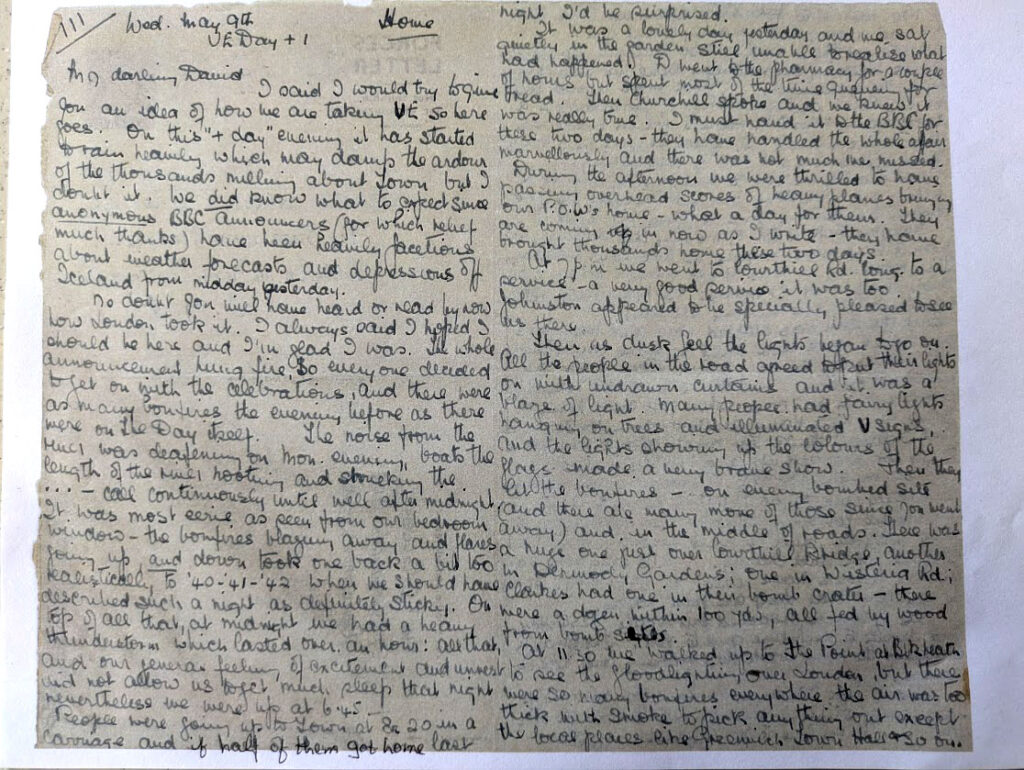 111
Wed. May 9th Home
VE Day + 1
My darling David
I said I would try to give
you an idea of how we are taking VE so here
goes. On this "+ day" evening it has started
to rain heavily which may damp the ardour
of the thousands milling about Town but I
doubt it. We did know what to expect since
anonymous BBC announcers (for which relief
much thanks) have been heavily facetious
about weather forecasts and depressions off
Iceland from midday yesterday.
No doubt you will have heard or read by now
how London took it. I always said I hoped I
should be here and I'm glad I was. The whole
announcement hung fire, so everyone decided
to get on with the celebrations, and there were
as many bonfires the evening before as there
were on The Day itself. The noise from the
river was deafening on Mon. evening, boats the
length of the river hooting and shrieking the
...– call continuously until well after midnight
It was most eerie as seen from our bedroom
window – the bonfires blazing away and flares
going up, and down took one back a bit too
realistically to '40-'41-'42 when we should have
described such a night as definitely sticky. On
top of all that, at midnight we had a heavy
thunderstorm which lasted over an hour: all that,
and our general feeling of excitement and unrest
did not allow us to get much sleep that night
nevertheless we were up at 6.45 –
People were going up to Town at 8 20 in a
carriage and if half of them got home last
night I'd be surprised.
It was a lovely day yesterday and we sat
quietly in the garden still unable to realise what
had happened. D went to the pharmacy for a couple
of hours but spent most of the time queueing for
bread. Then Churchill spoke and we knew it
was really true. I must hand it to the BBC for
these two days – they have handled the whole affair
marvellously and there was not much we missed.
During the afternoon we were thrilled to have
passing overhead scores of heavy planes bringing
our P.O.W's home – what a day for them. They
are coming up in now as I write – they have
brought thousands home these two days.
At 7 p.m we went to Courthill Rd. Cong. to a
service – a very good service it was too
Johnston appeared to be specially pleased to see
us there.
Then as dusk fell the lights began to go on.
All the people in the road agreed to put their lights
on with undrawn curtains and it was a
blaze of light. Many people had fairy lights
hanging on trees and illuminated V signs,
and the lights showing up the colours of the
flags made a very brave show. Then they
lit the bonfires – on every bombed site
(and there are many more of those since you went
away) and in the middle of roads. There was
a huge one just over Courthill Bridge, another
in Dermody Gardens; one in Wisteria Rd.;
Clarkes had one in their bomb crater – there
were a dozen within 100 yds, all fed by wood
from bomb sites.
At 11 30 we walked up to The Point at Blkheath
to see the floodlighting over London, but there
were so many bonfires everywhere the air was too
thick with smoke to pick anything out except
the local places like Greenwich Town Hall & so on.